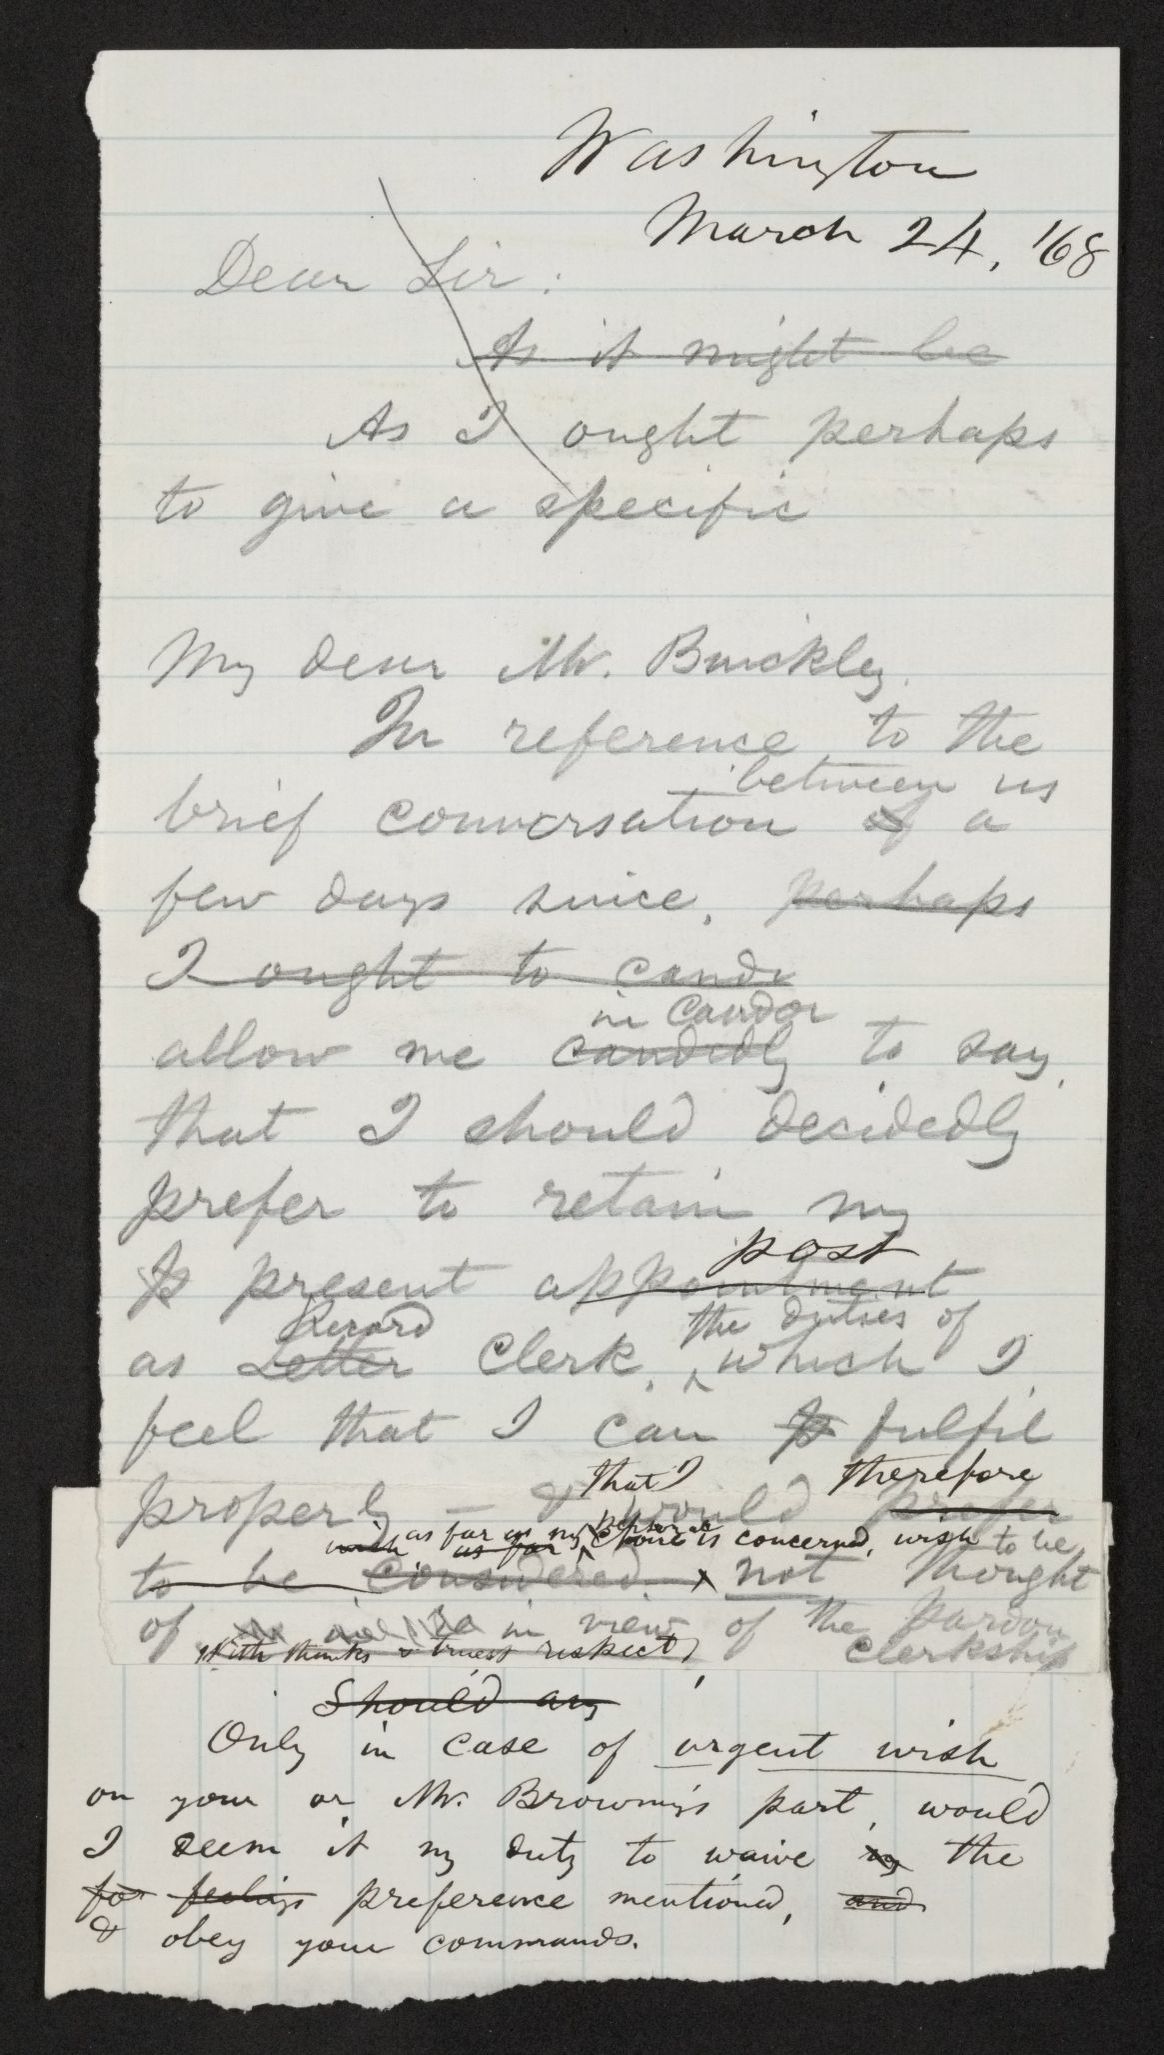 Washington
March 24, '68
Dear Sir:
As it might be
As I ought perhaps
to give a specific
My dear Mr. Binckley.
In reference to the
between us
brief conversation of a
few days since, perhaps
I ought to candi
in candor
allow me candidly to say,
that I should decidedly
prefer to retain my
post
p present appointment
Record the duties of
as Letter Clerk, ^ which I
feel that I can p fulfil
that I therefore
properly — & would prefer
personal
wish as far as my as far ^ choice is concerned, wish to be
to be considered not thought
of in view of the pardon
clerkship
With thanks & truest respect,
Should any
Only in case of urgent wish
on your or Mr. Browning's part, would
I deem it my duty to waive my the
for feelings preference mentioned, and
& obey your commands.